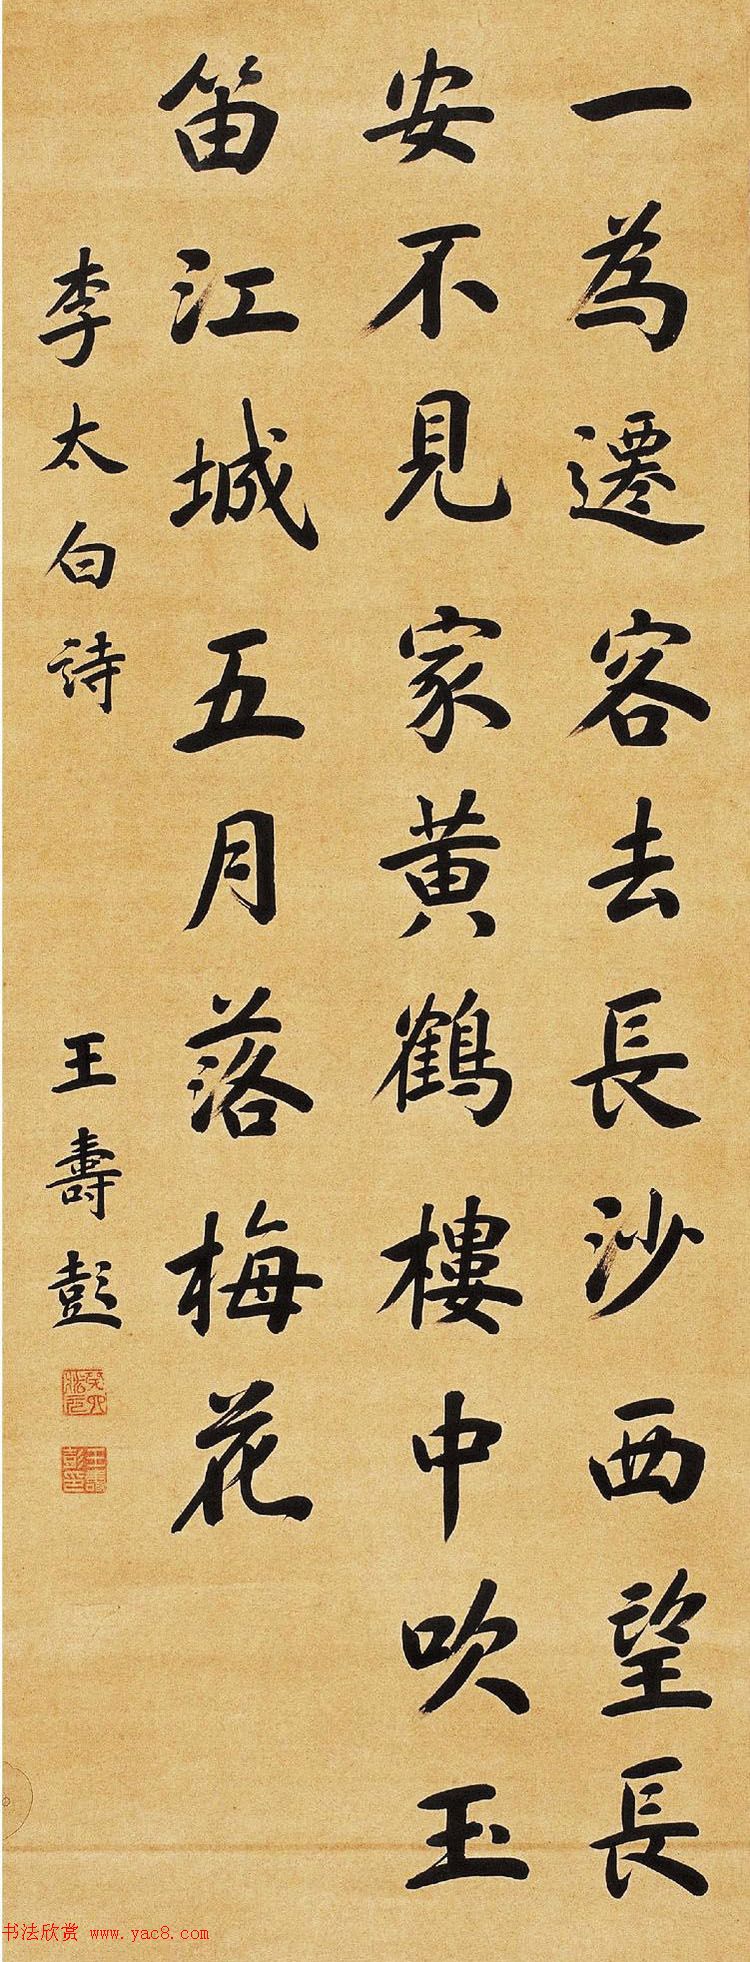 一為遷客去長沙西望長
安不見家黃鶴樓中吹玉
笛江城五月落梅花
李太白詩
王壽彭
癸卯狀元
王壽彭印
书法欣赏 www.yac8.com